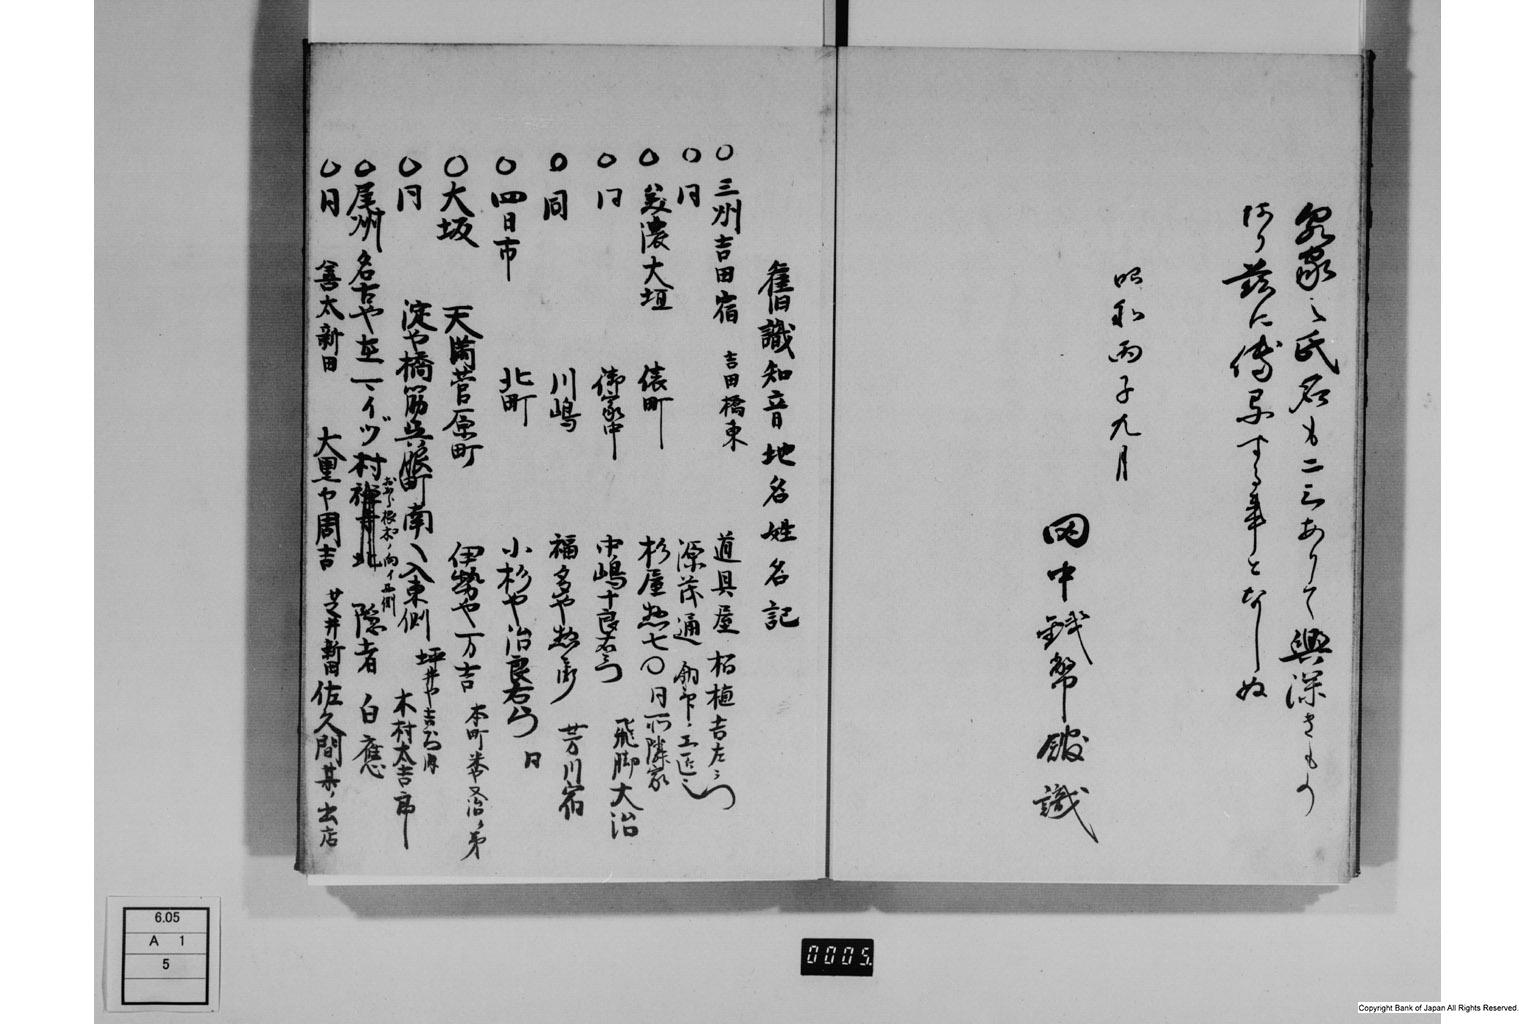 泉家之氏名も二三ありて興深きもの
あり茲に傳写する事となしぬ
昭和丙子九月
田中銭幣館識
舊識知音地名姓名記
〇三州吉田宿 吉田橋東 道具屋 柘植吉左衛門
〇同 源茂通
〇美濃大垣 俵町 杉屋惣七〇同所隣家
〇同 御家中 中嶋十良右衛門 飛脚大治
〇同 川嶋 福多や惣
〇四日市 北町 小杉や治良右衛門 同
〇大坂 天満菅原町 伊勢や万吉 本町
〇同 淀や橋筋呉服町南へ入東側 坪井や吉
木村太吉郎
〇尾州名古や 村 隠者 白應
〇同 善太新田 大黒や周吉 芝井新田 佐久間某ノ出店
6.05
A 1
5
0005
Copyright Bank of Japan All Rights Reserved.